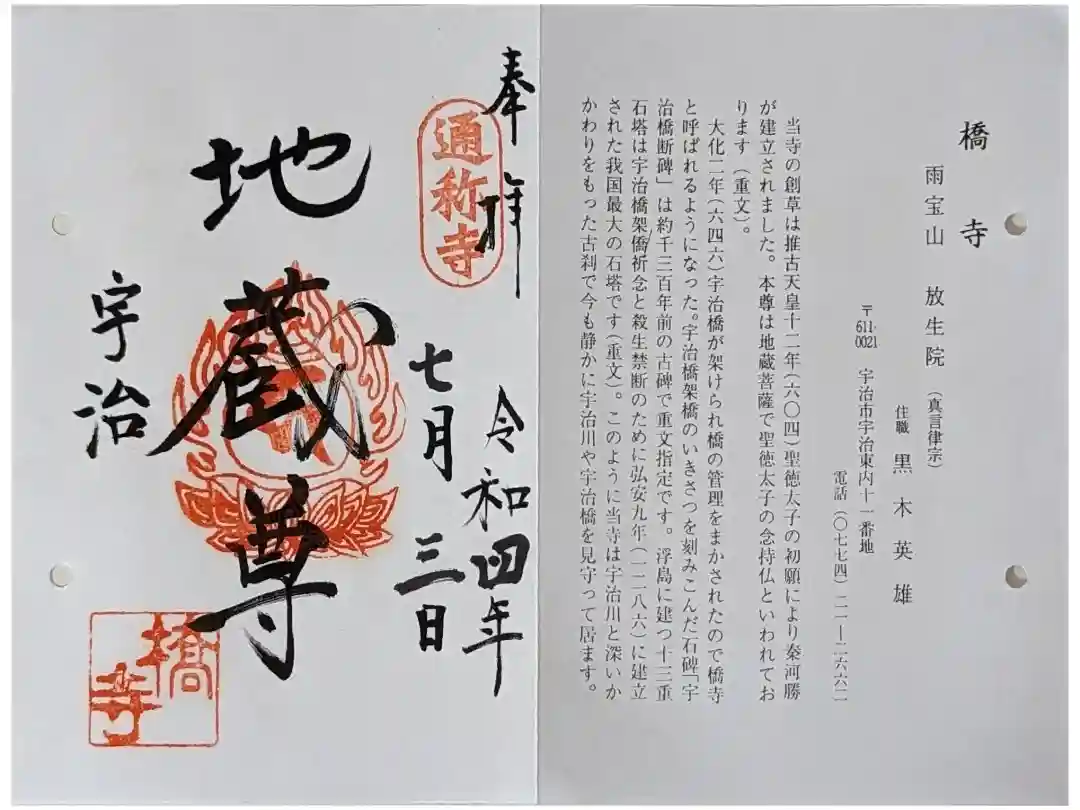 橋寺
雨宝山 放生院(真言律宗)
住職 黒木英雄
〒611-0021 宇治市宇治東内十一番地
電話(〇七七四)二一―二六六二
当寺の創草は推古天皇十二年(六〇四)聖徳太子の初願により秦河勝
が建立されました。本尊は地蔵菩薩で聖徳太子の念持仏といわれてお
ります(重文)。
大化二年(六四六)宇治橋が架けられ橋の管理をまかされたので橋寺
と呼ばれるようになった。宇治橋架橋のいきさつを刻みこんだ石碑「宇
治橋断碑」は約千三百年前の古碑で重文指定です。浮島に建つ十三重
石塔は宇治橋架僑祈念と殺生禁断のために弘安九年(一二八六)に建立
された我国最大の石塔です(重文)。このように当寺は宇治川と深いか
かわりをもった古刹で今も静かに宇治川や宇治橋を見守って居ます。
奉拝
通称寺
令和四年
七月三日
地蔵尊
宇治
橋寺